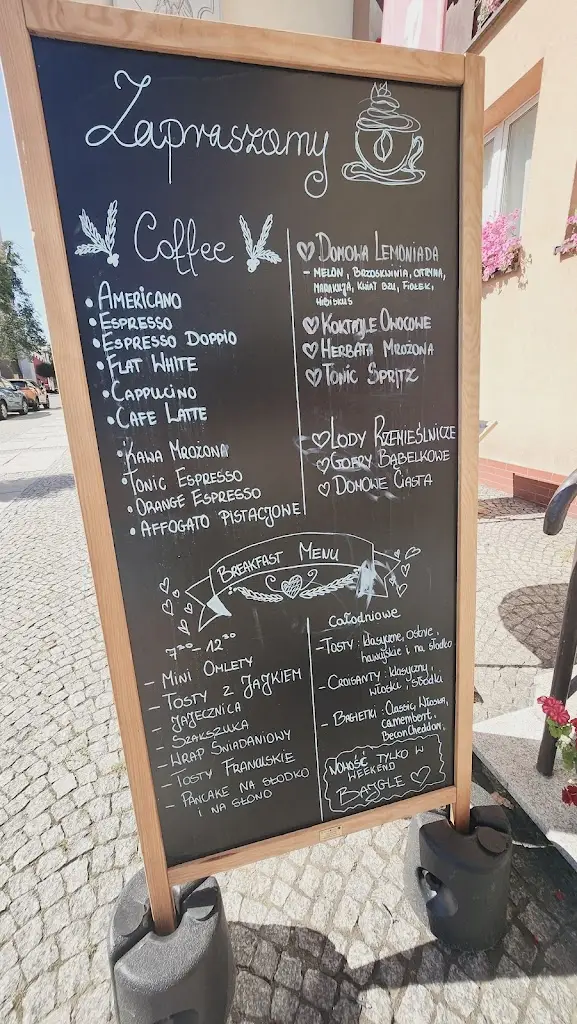 Zapraszamy
Coffee
• Americano
• Espresso
• Espresso Doppio
• Flat White
• Cappucino
• Cafe Latte
• Kawa Mrożona
• Tonic Espresso
• Orange Espresso
• Affogato Pistacjone
♡ Domowa Lemoniada
- Melon, Brzoskwinia, Cytryna,
Marakuja, Kwiat Bzu, Fiołek,
Hibiskus
♡ Koktajle Owocowe
♡ Herbata Mrożona
♡ Tonic Spritz
♡ Lody Rzemieślnicze
♡ Gofry Bąbelkowe
♡ Domowe Ciasta
Breakfast Menu
7³⁰ - 12³⁰
- Mini Omlety
- Tosty z Jajkiem
- Jajecznica
- Szakszuka
- Wrap Śniadaniowy
- Tosty Francuskie
- Pancake na słodko
i na słono
całodniowe
- Tosty: klasyczne, ostre,
hawajskie i na słodko
- Croisanty: klasyczny,
włoski, słodki
- Bagietki: Classic, Włoska,
camembert,
BeconCheddar,
Nowość tylko w
weekend
Bajgle ♡